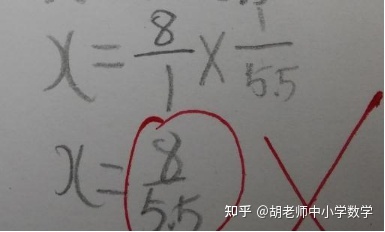 x = 8/1 × 1/5.5
x = 8/5.5
知乎 @胡老师中小学数学